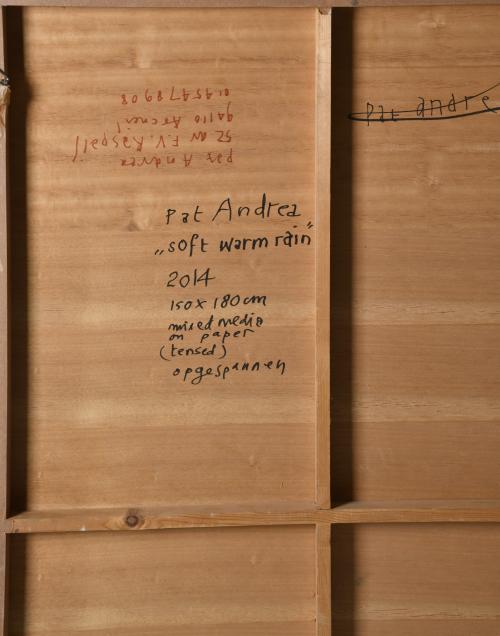 pat Andrea
52 av F.V. Raspail
94110 Arcueil
0145478908
Pat Andrea
„soft warm rain"
2014
150 x 180 cm
mixed media
on paper
(tensed)
opgespannen
Pat andre